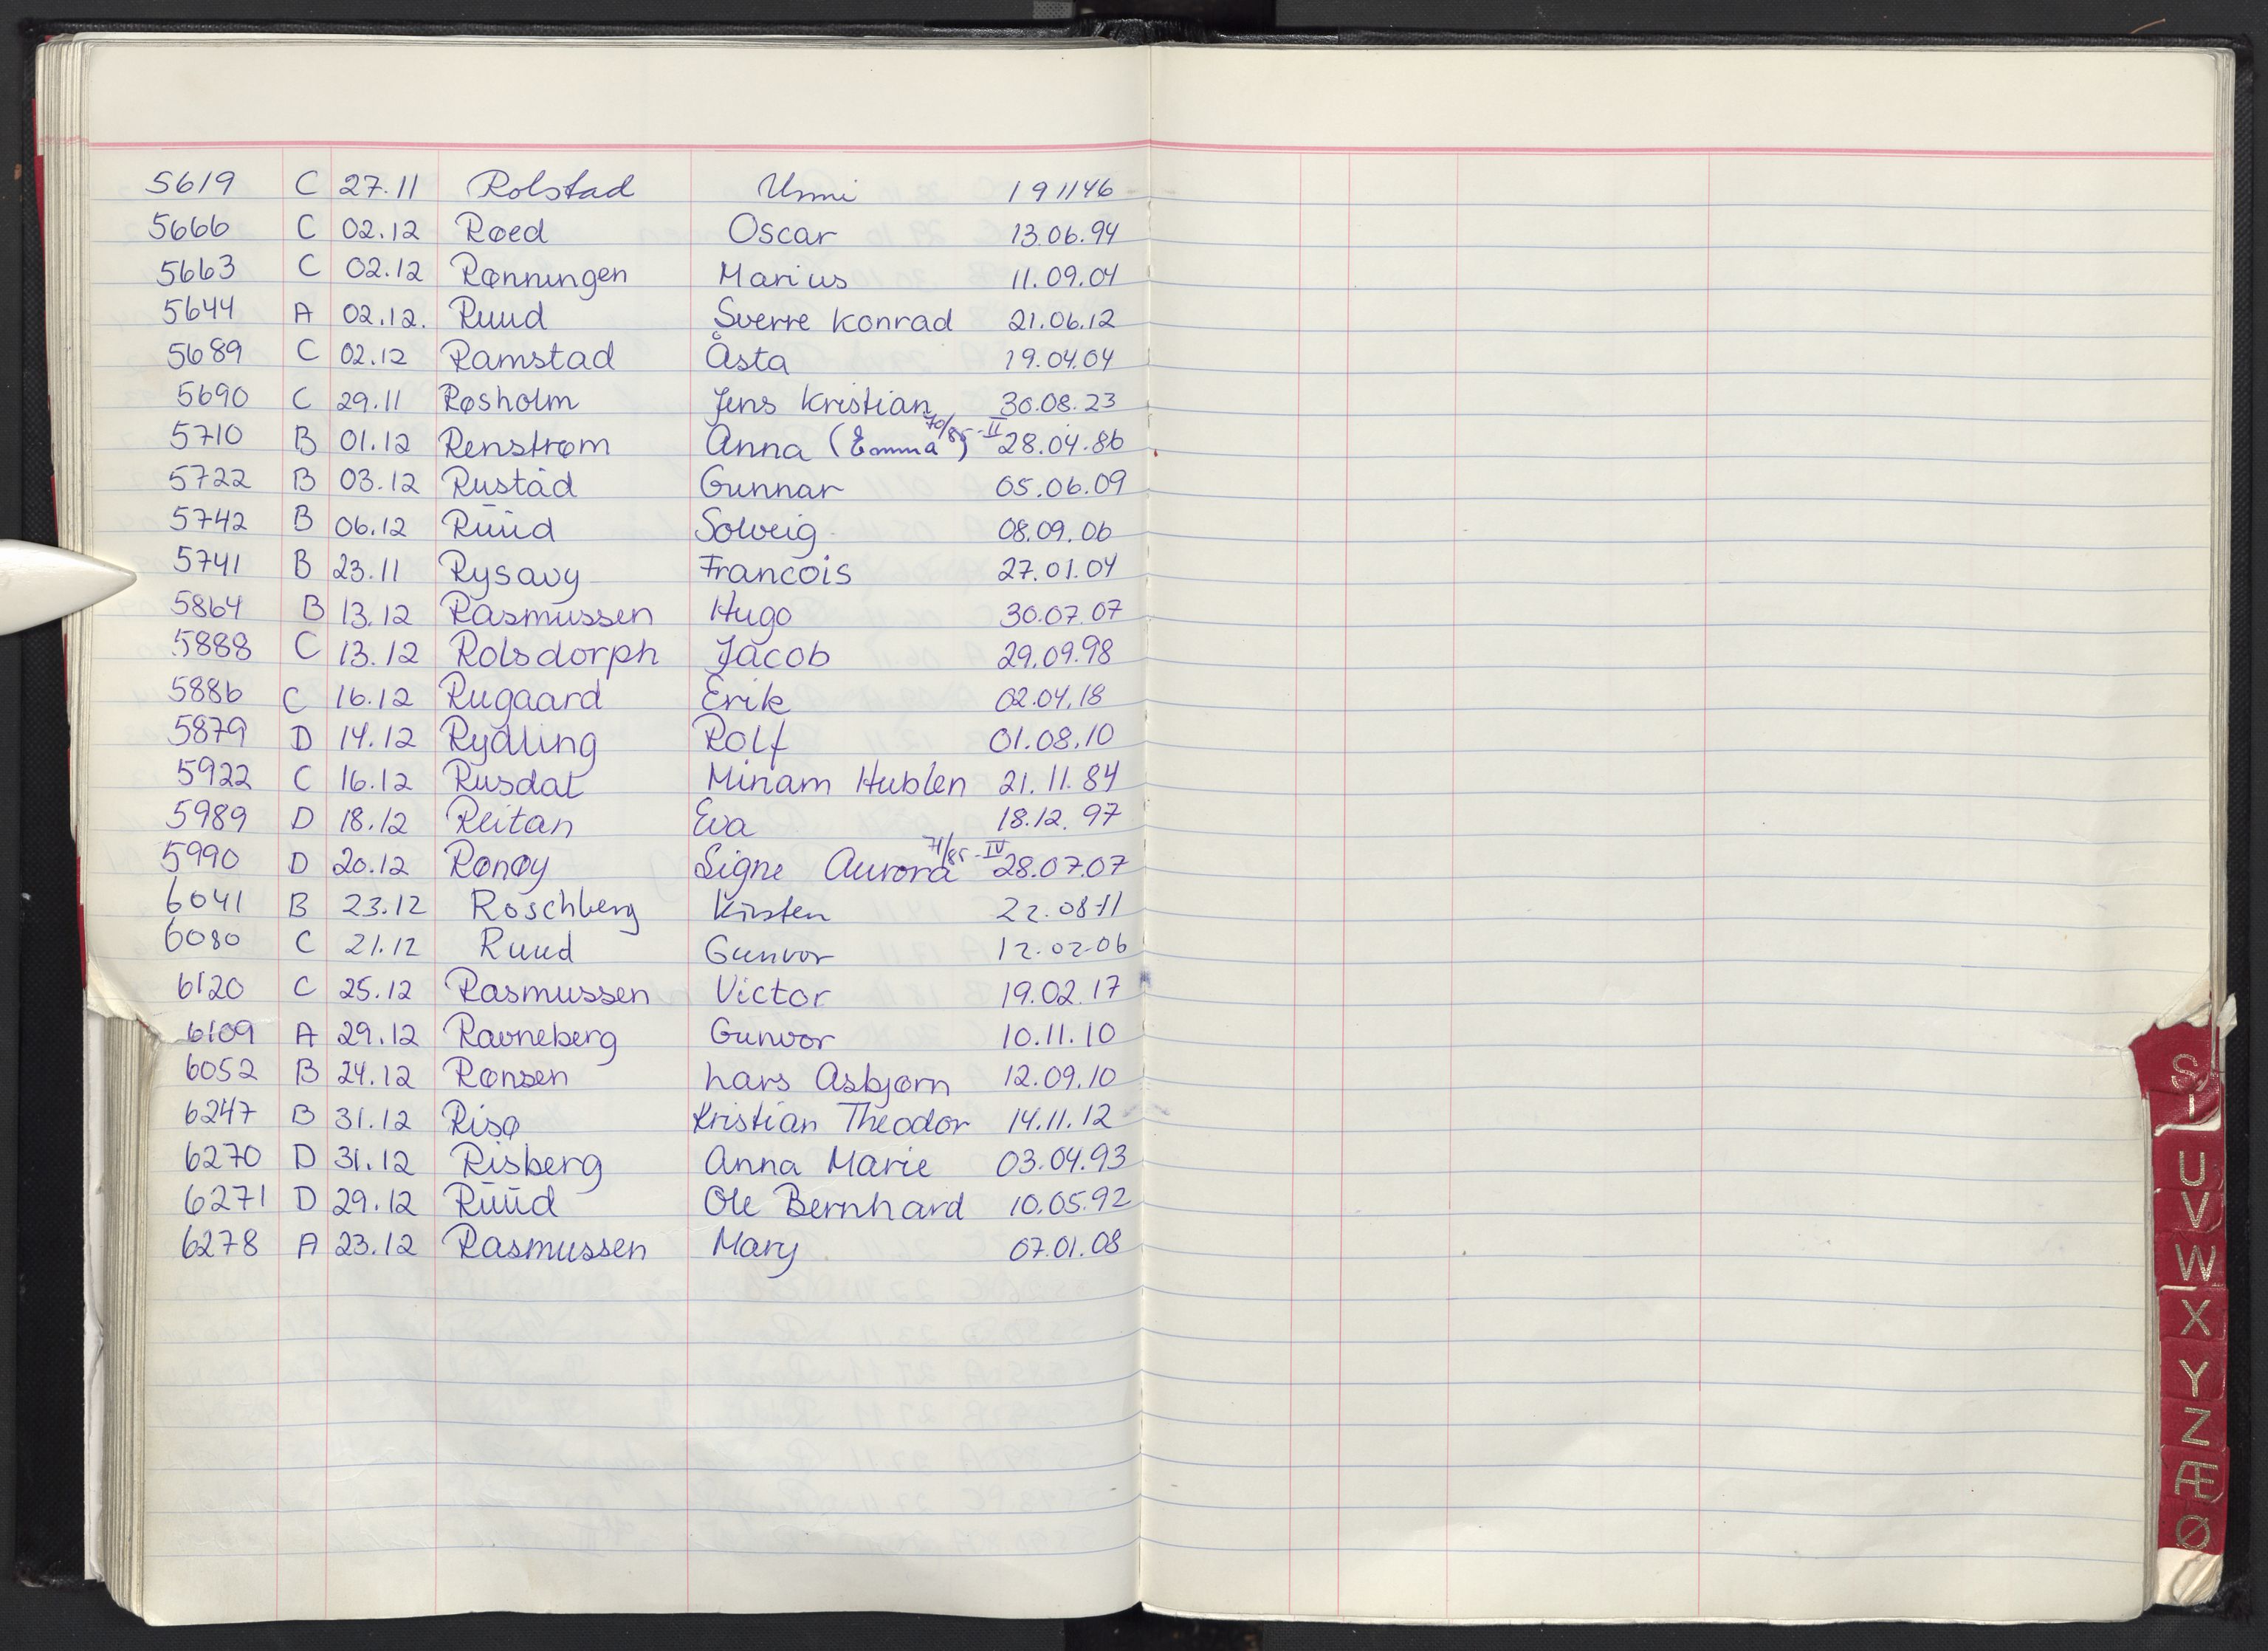 5619 C 27.11 Rolstad Unni 191146
5666 C 02.12 Røed Oscar 13.06.94
5663 C 02.12 Rønningen Marius 11.09.04
5644 A 02.12. Ruud Sverre Konrad 21.06.12
5689 C 02.12 Ramstad Åsta 19.04.04
5690 C 29.11 Røsholm Jens Kristian 30.08.23
70/85-II
5710 B 01.12 Renstrøm Anna (Emma) 28.04.86
5722 B 03.12 Rustad Gunnar 05.06.09
5742 B 06.12 Ruud Solveig 08.09.06
5741 B 23.11 Rysavy Francois 27.01.04
5864 B 13.12 Rasmussen Hugo 30.07.07
5888 C 13.12 Rolsdorph Jacob 29.09.98
5886 C 16.12 Rugaard Erik 02.04.18
5879 D 14.12 Rydling Rolf 01.08.10
5922 C 16.12 Rusdal Miriam Hublen 21.11.84
5989 D 18.12 Reitan Eva 18.12.97
71/85-IV
5990 D 20.12 Rønøy Signe Aurora 28.07.07
6041 B 23.12 Roschberg Kirsten 22.08-11
6080 C 21.12 Ruud Gunvor 12.02-06
6120 C 25.12 Rasmussen Victor 19.02.17
6109 A 29.12 Ravneberg Gunvor 10.11.10
6052 B 24.12 Rønsen Lars Asbjørn 12.09.10
6247 B 31.12 Risø Kristian Theodor 14.11.12
6270 D 31.12 Risberg Anna Marie 03.04.93
6271 D 29.12 Ruud Ole Bernhard 10.05.92
6278 A 23.12 Rasmussen Mary 07.01.08
S
U
V
W
X
Y
Z
Æ
Ø